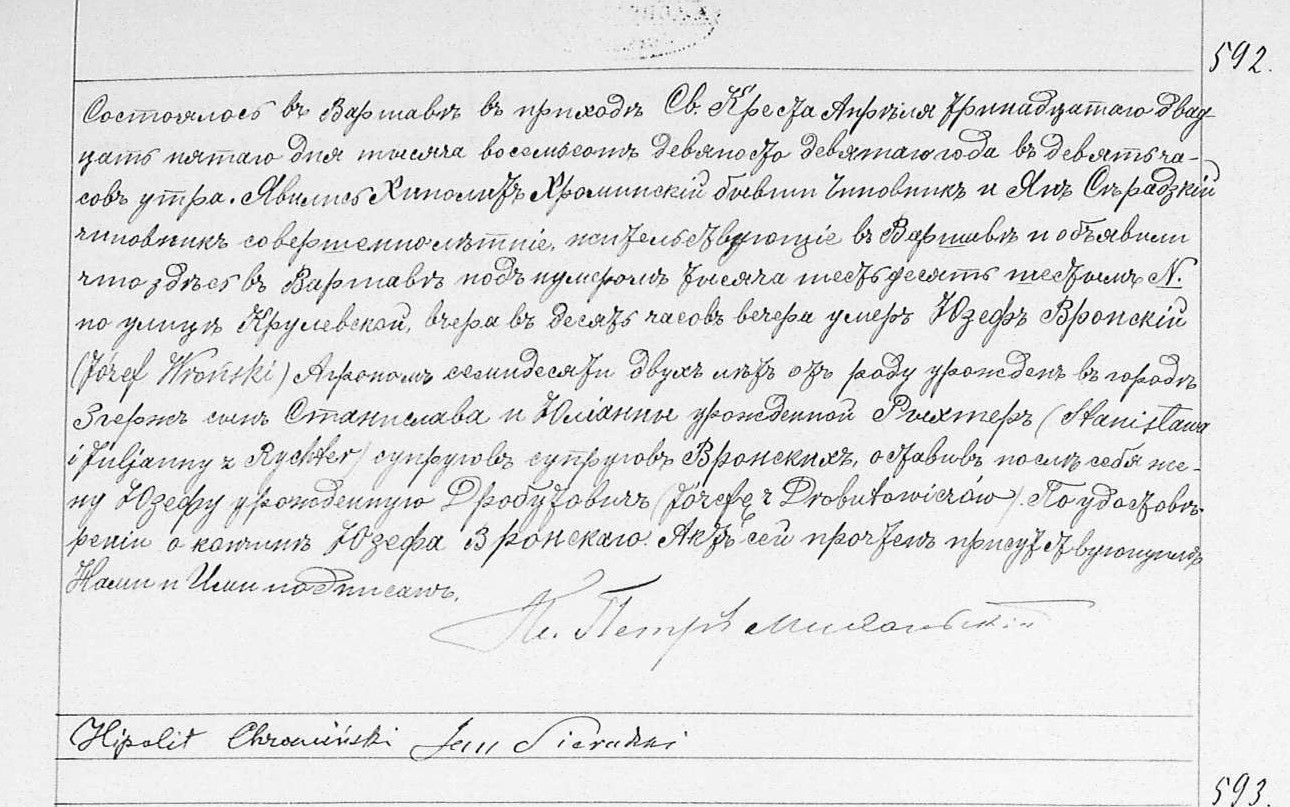 592.
Состоялось въ Варшавѣ въ приходѣ Св. Креста Апрѣля тринадцатаго двад-
цать пятаго дня тысяча восемьсотъ девяносто девятаго года въ девять ча-
совъ утра. Явились Хиполитъ Хроминскій бывшій чиновникъ и Янъ Сѣрадзкій
чиновникъ совершеннолѣтніе, жительствующіе въ Варшавѣ и объявили
что здѣсь въ Варшавѣ подъ нумеромъ тысяча шестьдесятъ шестымъ N.
по улицѣ Крулевской, вчера въ десять часовъ вечера умеръ Юзефъ Вронскій
(Józef Wroński) Агрономъ семидесяти двухъ лѣтъ отъ роду урожденъ въ городѣ
Згержѣ сынъ Станислава и Юліанны урожденной Рыхтеръ (Stanisława
i Juljanny z Rychter) супруговъ супруговъ Вронскихъ, оставивъ послѣ себя же-
ну Юзефу урожденную Дробутовичъ (Józefę z Drobutowiczów). По удостовѣ-
реніи о кончинѣ Юзефа Вронскаго. Актъ сей прочтенъ присутствующимъ
Нами и Ими подписанъ.
Кс. Петръ
Hipolit Chromiński Jan Sieradzki
593.